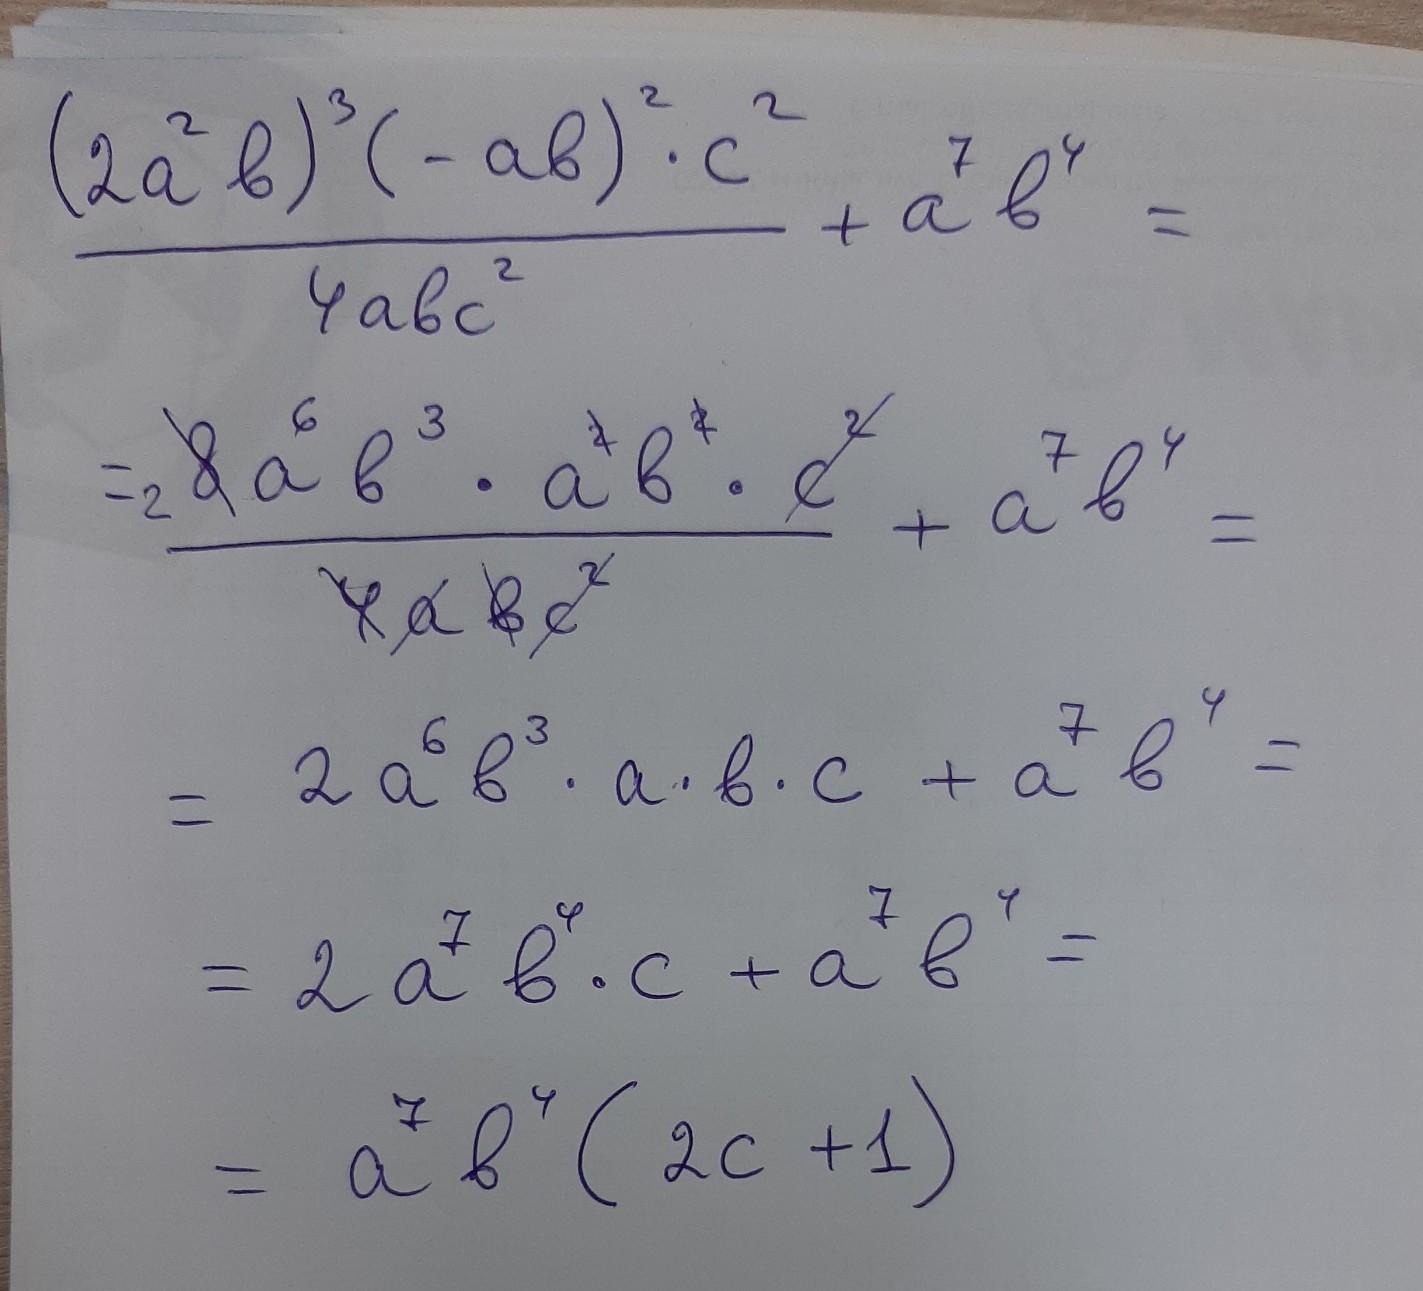 (2a²b)³(-ab)²·c²/4abc² + a⁷b⁴ =
=₂8a⁶b³·a²b²·c²/4abc² + a⁷b⁴ =
= 2a⁶b³·a·b·c + a⁷b⁴ =
= 2a⁷b⁴·c + a⁷b⁴ =
= a⁷b⁴(2c+1)